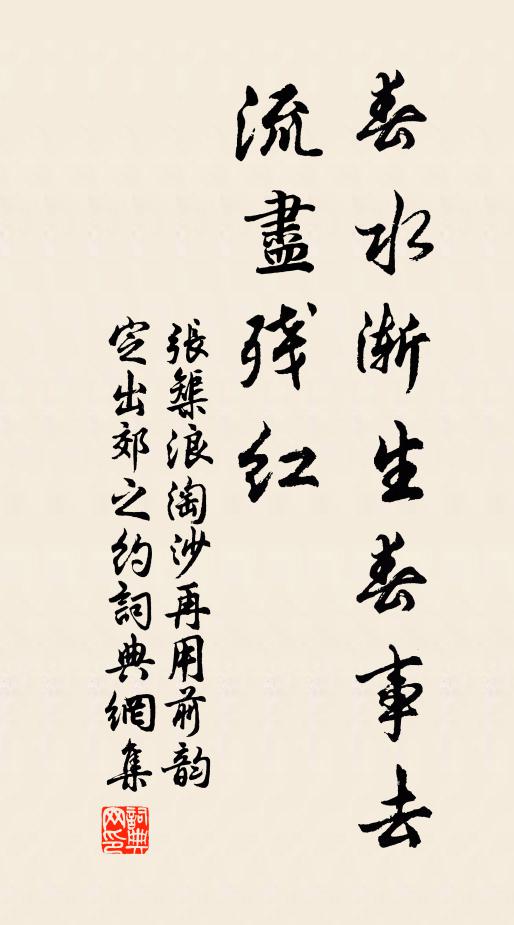 春水漸生春事去
流盡残红
張榘浪淘沙再用前韵
定出郊之約詞典網集
詞典网印